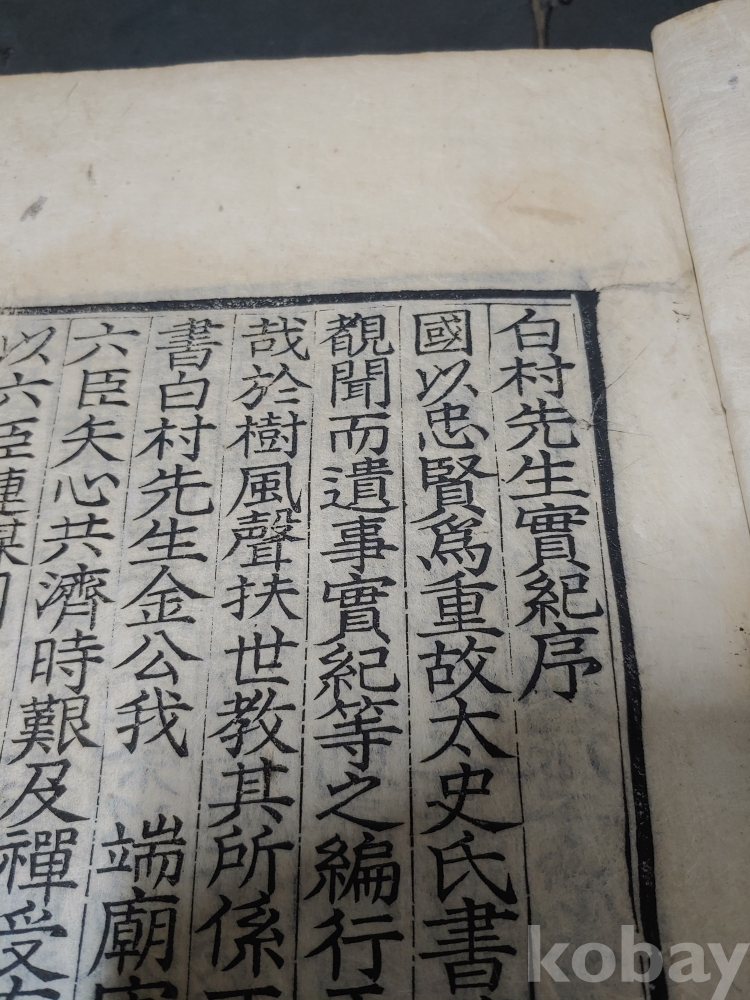 白村先生實紀序
國以忠賢爲重故太史氏書
覩聞而遺事實紀等之編行
哉於樹風聲扶世教其所係
書白村先生金公我 端廟
六臣矢心共濟時艱及禪受
以六臣連謀
kobay